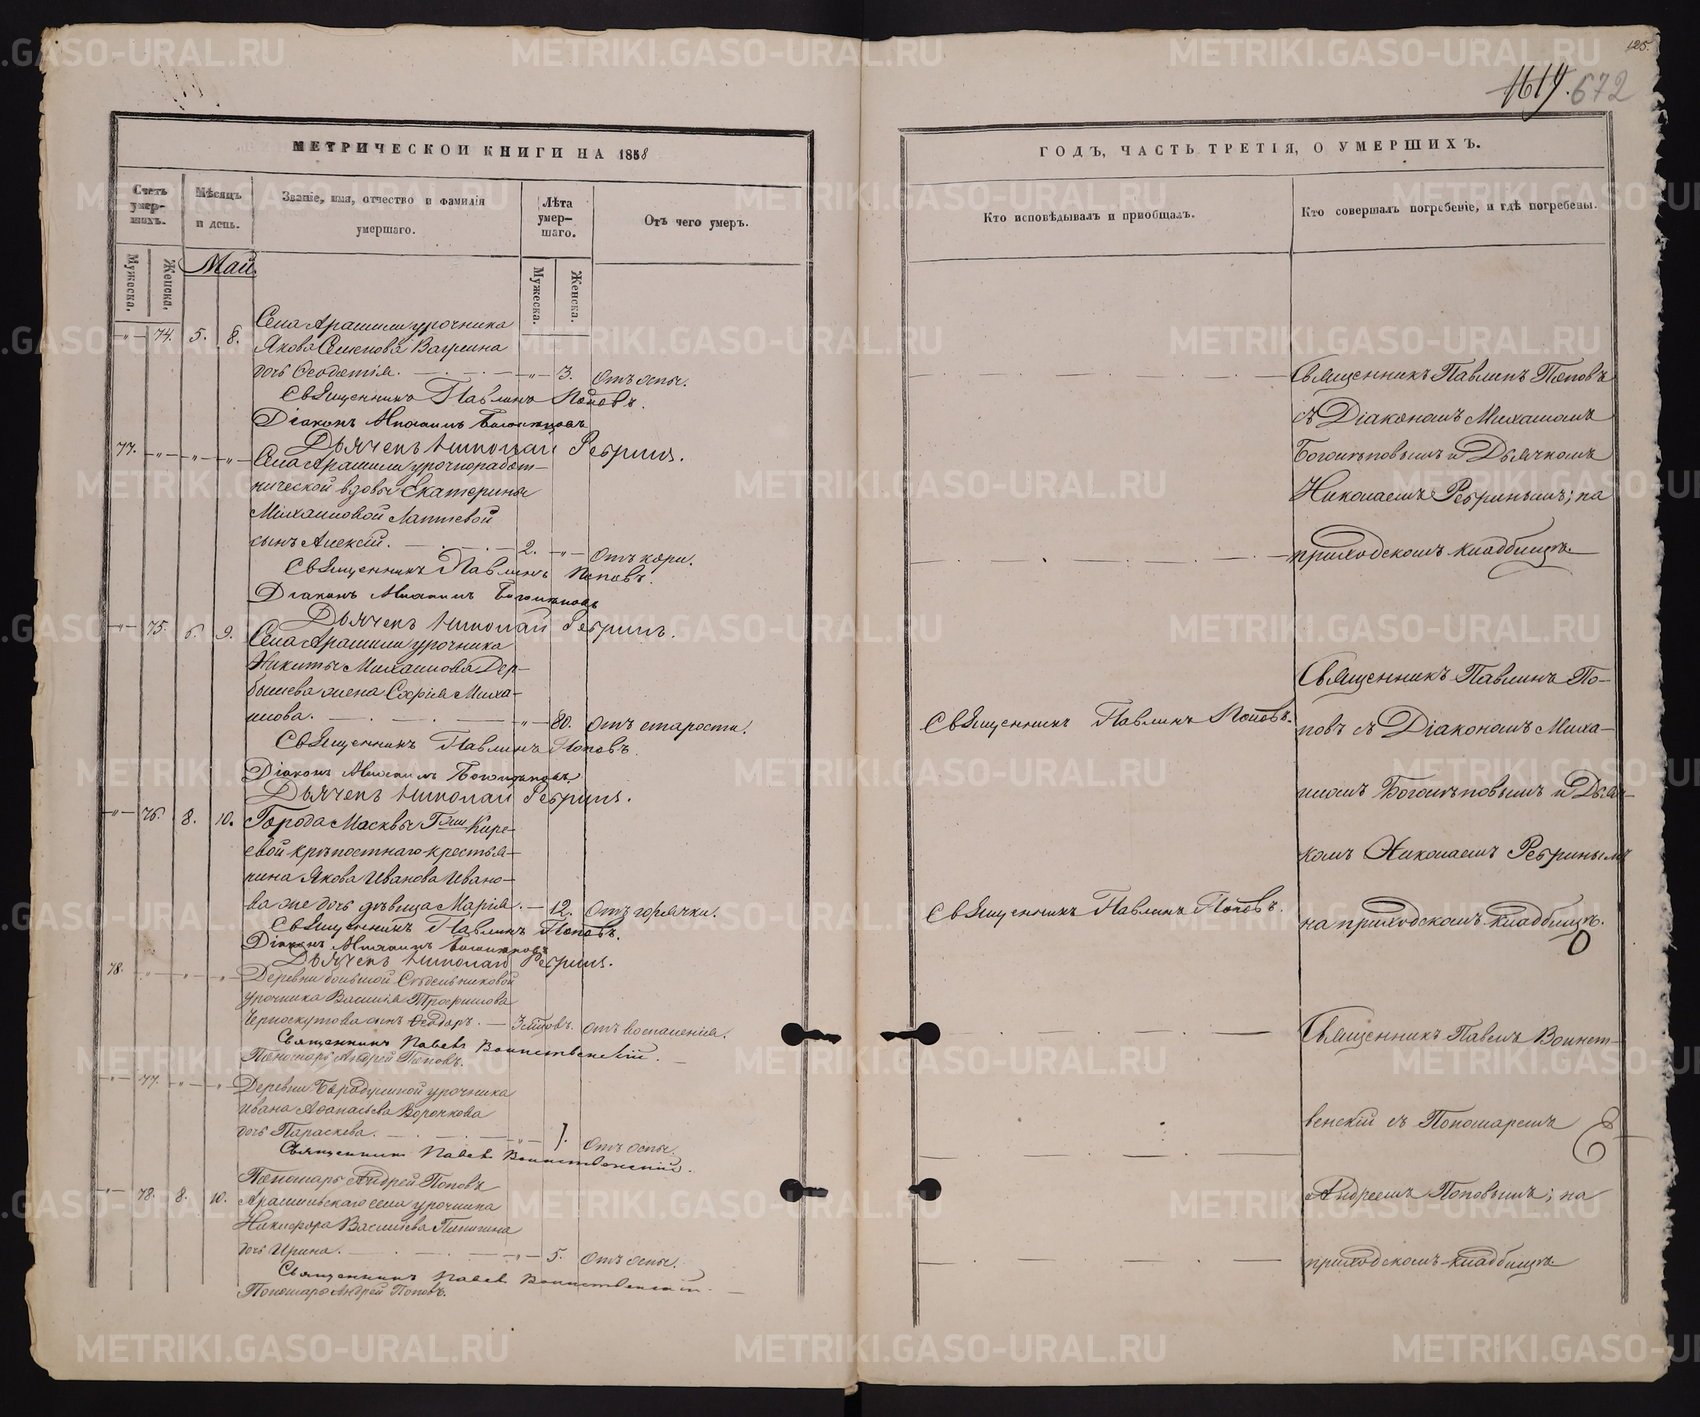 125.
1619. 672
МЕТРИЧЕСКОЙ КНИГИ НА 1858
ГОДЪ, ЧАСТЬ ТРЕТІЯ, О УМЕРШИХЪ.
Счетъ умер-
шихъ.
Мѣсяцъ
и день.
Званіе, имя, отчество и фамилія
умершаго.
Лѣта
умер-
шаго.
Отъ чего умеръ.
Кто исповѣдывалъ и пріобщалъ.
Кто совершалъ погребеніе, и гдѣ погребены.
Мужеска.
Женска.
Май.
Мужеска.
Женска.
Села Арамили урочника
74. 5. 8. Якова Семенова
дочь Феодотія. 3. Отъ оспы.
Священникъ Павлинъ Поповъ.
Діаконъ Михаилъ Боголѣповъ
Дьячекъ Николай Ребринъ.
77. Села Арамили урочноработ-
нической вдовы Екатерины
Михаиловой Лаптевой
сынъ Алексій. 2. Отъ кори.
Священникъ Павлинъ Поповъ.
Діаконъ Михаилъ Боголѣповъ
Дьячекъ Николай Ребринъ.
75. 6. 9. Села Арамили урочника
Никиты Михаилова Дер-
бышева жена Софія Миха-
илова. 80. Отъ старости.
Священникъ Павлинъ Поповъ.
Діаконъ Михаилъ Боголѣповъ.
Дьячекъ Николай Ребринъ.
76. 8. 10. Города Москвы Гжи Кире-
евой крѣпостнаго крестья-
нина Якова Иванова Ивано-
ва же дочь дѣвица Марія. 12. Отъ горячки.
Священникъ Павлинъ Поповъ.
Діаконъ Михаилъ Боголѣповъ
Дьячекъ Николай Ребринъ.
78. Деревни большой Седельниковой
урочника Василія Трофимова
Черноскутова сынъ Феодоръ. Отъ воспаленія.
Священникъ Павелъ Воинственскій.
Пономарь Андрей Поповъ.
77. Деревни Бородулиной урочника
Ивана Афанасьева Ворочкова
дочь Параскева. 1. Отъ оспы.
Священникъ Павелъ Воинственскій.
Пономарь Андрей Поповъ
78. 8. 10. Арамильскаго села урочника
Никифора Васильева
дочь Ирина. 5. Отъ оспы.
Священникъ Павелъ Воинственскій.
Пономарь Андрей Поповъ.
Священникъ Павлинъ Поповъ.
Священникъ Павлинъ Поповъ.
Священникъ Павлинъ Поповъ
съ Діакономъ Михаиломъ
Боголѣповымъ и Дьячкомъ
Николаемъ Ребринымъ; на
приходскомъ кладбищѣ.
Священникъ Павлинъ По-
повъ съ Діакономъ Миха-
иломъ Боголѣповымъ и Дьяч-
комъ Николаемъ Ребринымъ
на приходскомъ кладбищѣ.
Священникъ Павелъ Воинст-
венскій съ Пономаремъ
Андреемъ Поповымъ; на
приходскомъ кладбищѣ
METRIKI.GASO-URAL.RU